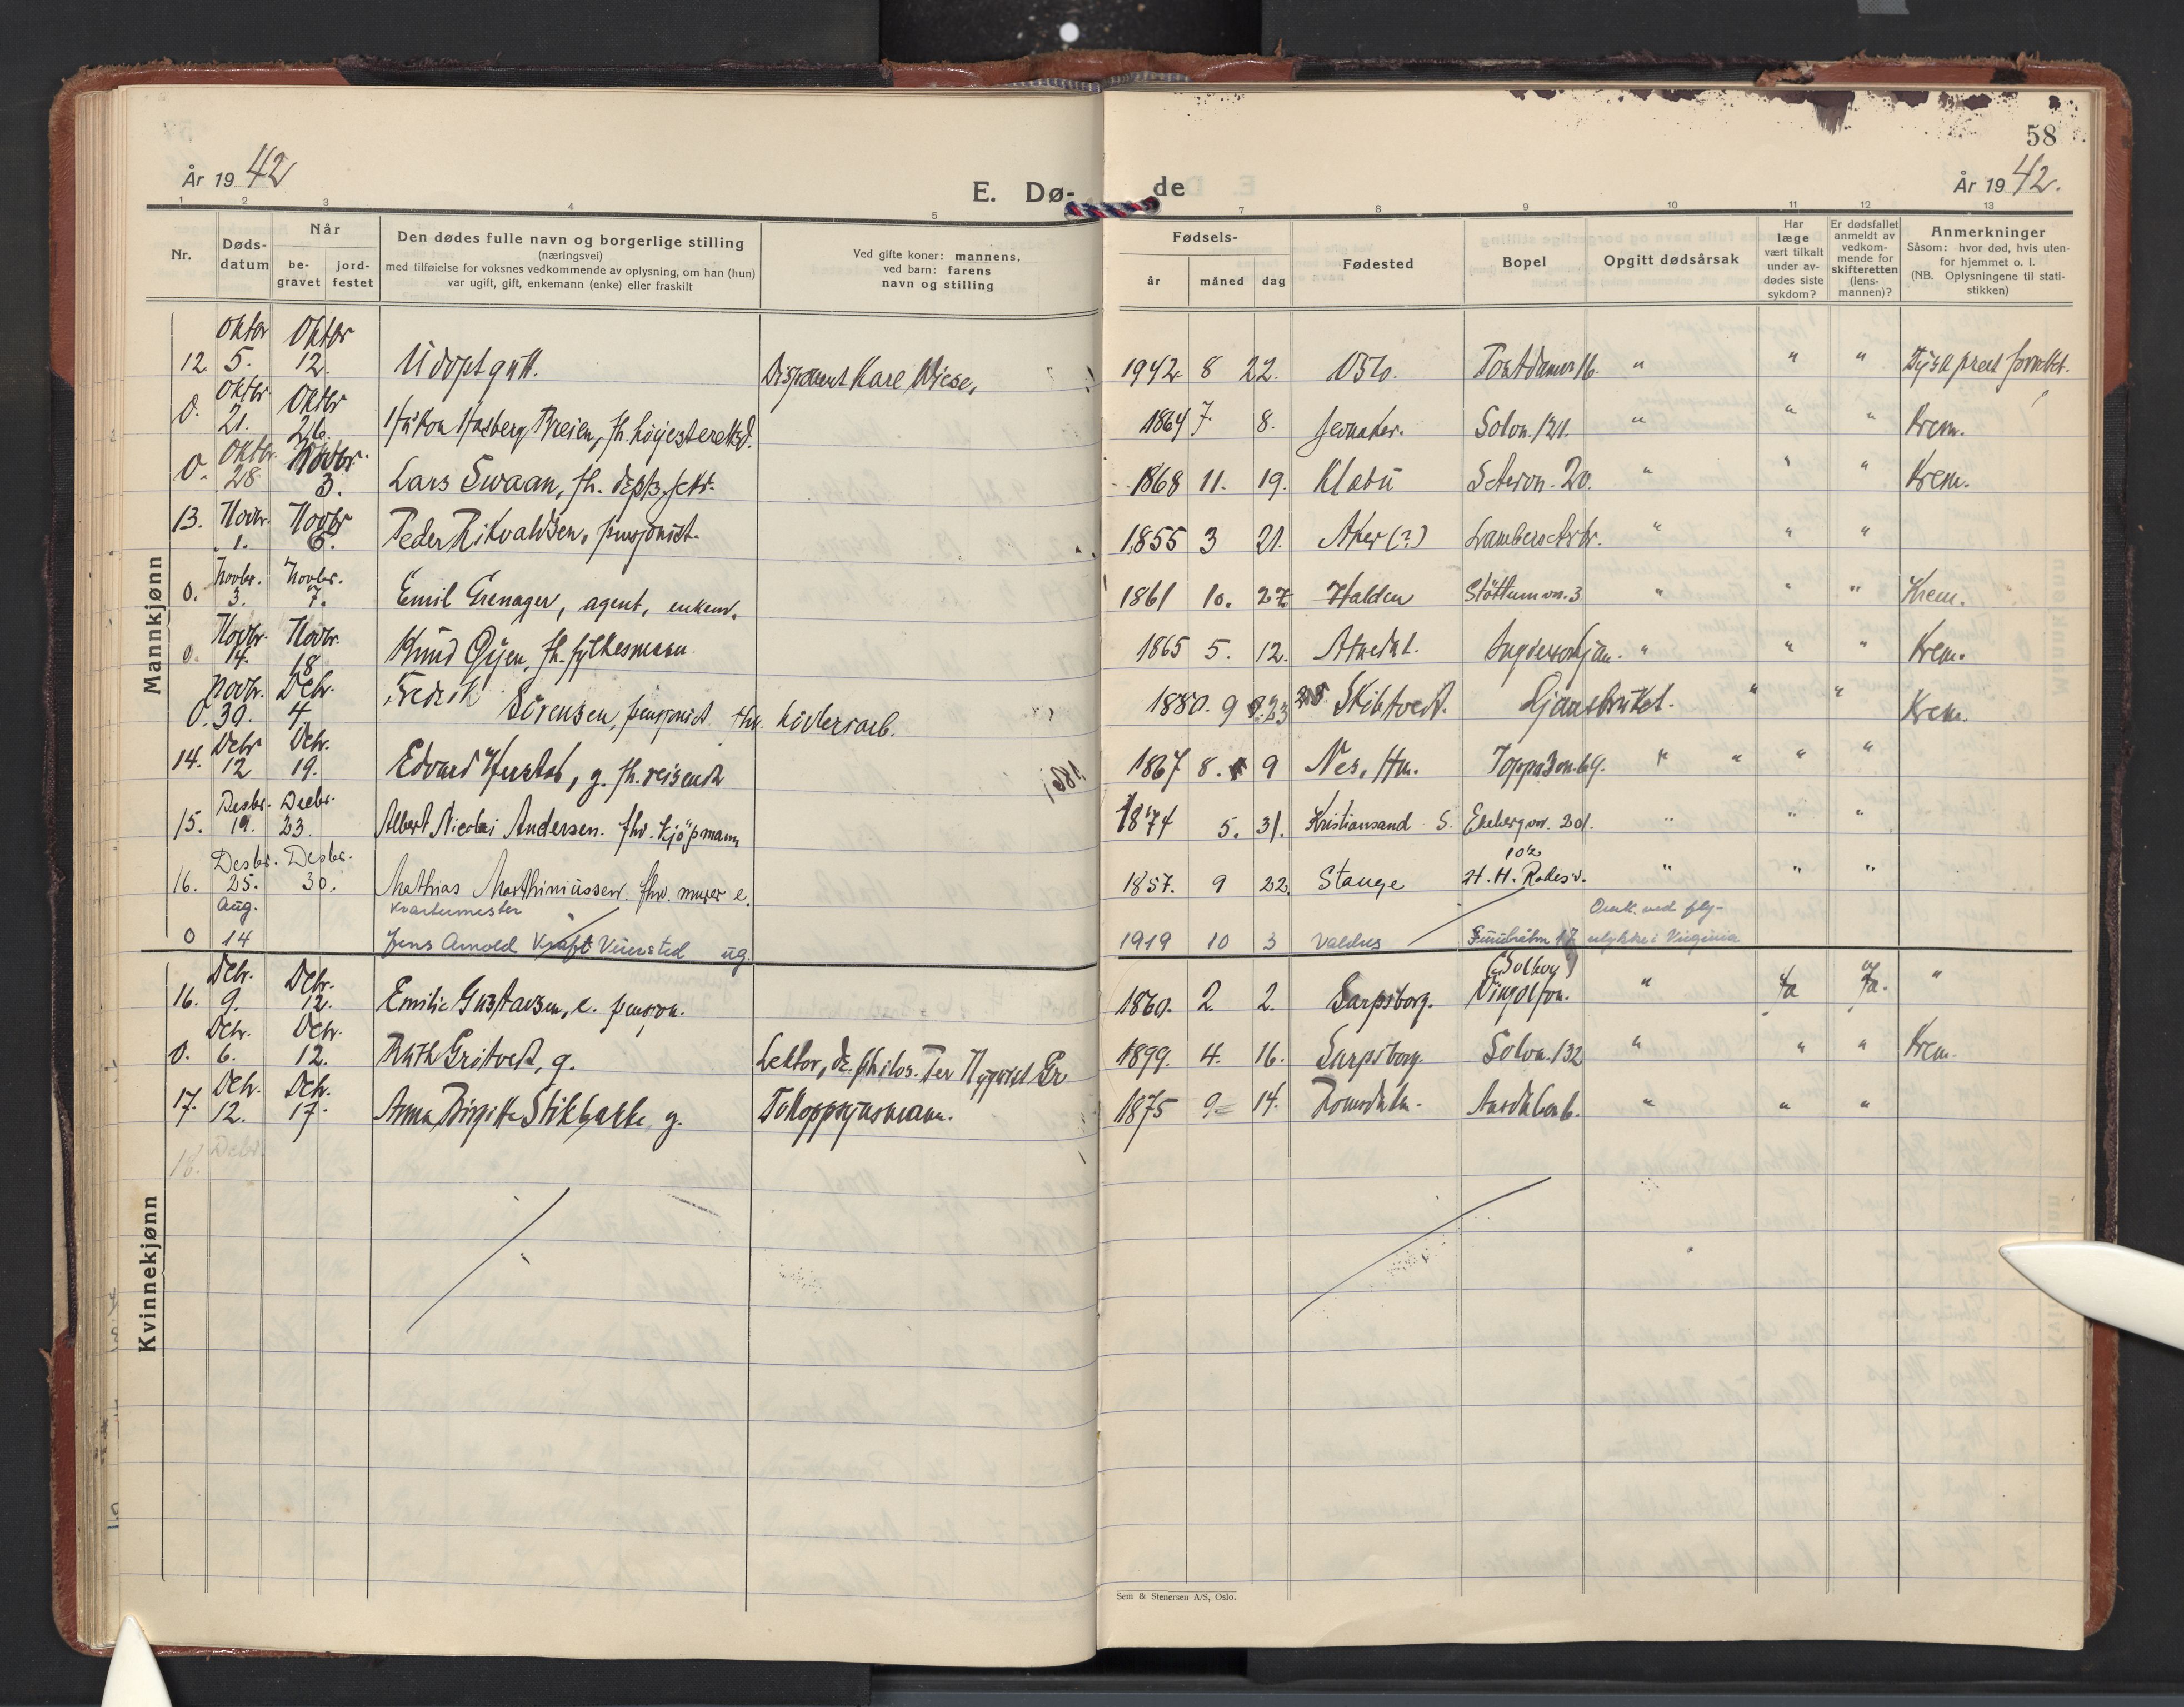 58
År 1942
E. Dø-
de
År 1942.
1 2 3 4 5 7 8 9 10 11 12 13
Nr.
Døds-
datum
Når
be-
gravet
jord-
festet
Den dødes fulle navn og borgerlige stilling
(næringsvei)
med tilføielse for voksnes vedkommende av oplysning, om han (hun)
var ugift, gift, enkemann (enke) eller fraskilt
Ved gifte koner: mannens,
ved barn: farens
navn og stilling
Fødsels-
år måned dag
Fødested
Bopel
Opgitt dødsårsak
Har
læge
vært tilkalt
under av-
dødes siste
sykdom?
Er dødsfallet
anmeldt av
vedkom-
mende for
skifteretten
(lens-
mannen)?
Anmerkninger
Såsom: hvor død, hvis uten-
for hjemmet o. l.
(NB. Oplysningene til stati-
stikken)
Mannkjønn
Oktbr Oktbr
12. 5. 12. Udøpt gutt. Disponent Kare Wiese, 1942 8 22. Oslo. " " "
Oktbr. Oktbr
0. 21. 26. 1864 7. 8. Jevnaker. Solvn. 121. " " " Krem.
Oktbr. Novbr.
0. 28 3. Lars Swaan, fh. 1868 11. 19. Klæbu Setervn. 20. " " " Krem.
13. Novbr. 1. Novbr 6. Peder Rikvaldsen, pensjonist. 1855 3 21. Aker (?) " " "
Novbr. Novbr.
0. 3. 7. Emil Grenager, agent, enkem. 1861 10. 27 Halden Støttumvn. 3 " " " Krem.
Novbr. Novbr.
0. 14. 18 Knud Øyen, fh. fylkesmann 1865 5. 12. " " " Krem.
Novbr. Debr.
0. 30. 4. Fredrik Sörensen, pensjonist 1880. 9 23 Skibtvedt. Ljansbruket. " " Krem.
Debr Debr.
14. 12 19. Edvard g. fh. reisende 1867 8. 9 Nes, Hm. Toppåsvn. 69. " " " "
Desbr. Decbr.
15. 19. 23. Albert Nicolai Andersen. fhv. kjöpmann 1874 5. 31. Kristiansand S. Ekebergvn. 201. " " "
Desbr. Desbr. 102
16. 25. 30. Mathias Marthiniussen. fhv. murer e. 1857. 9 22. Stange H. H. " " "
Aug. Kvartermester Omk. ved fly-
0 14 Jens Arnold Kraft Veiersted ug. 1919 10 3 17 ulykke i Virginia
Kvinnekjønn
Debr. Debr. (Solhøy)
16. 9. 12. Emilie Gustavsen, e. 1860. 2. 2. Sarpsborg. " Ja Ja. "
Debr. Debr.
0. 6. 12. Ruth g. Lektor, dr. philos. Per Nyqvist Gr 1899. 4. 16. Sarpsborg Solvn. 132 " " " Krem.
Debr. Debr.
17. 12. 17. Anna Birgitte Stikbakke, g. Tolloppsynsmann. 1875 9 14. " " "
18. Debr.
Sem & Stenersen A/S, Oslo.